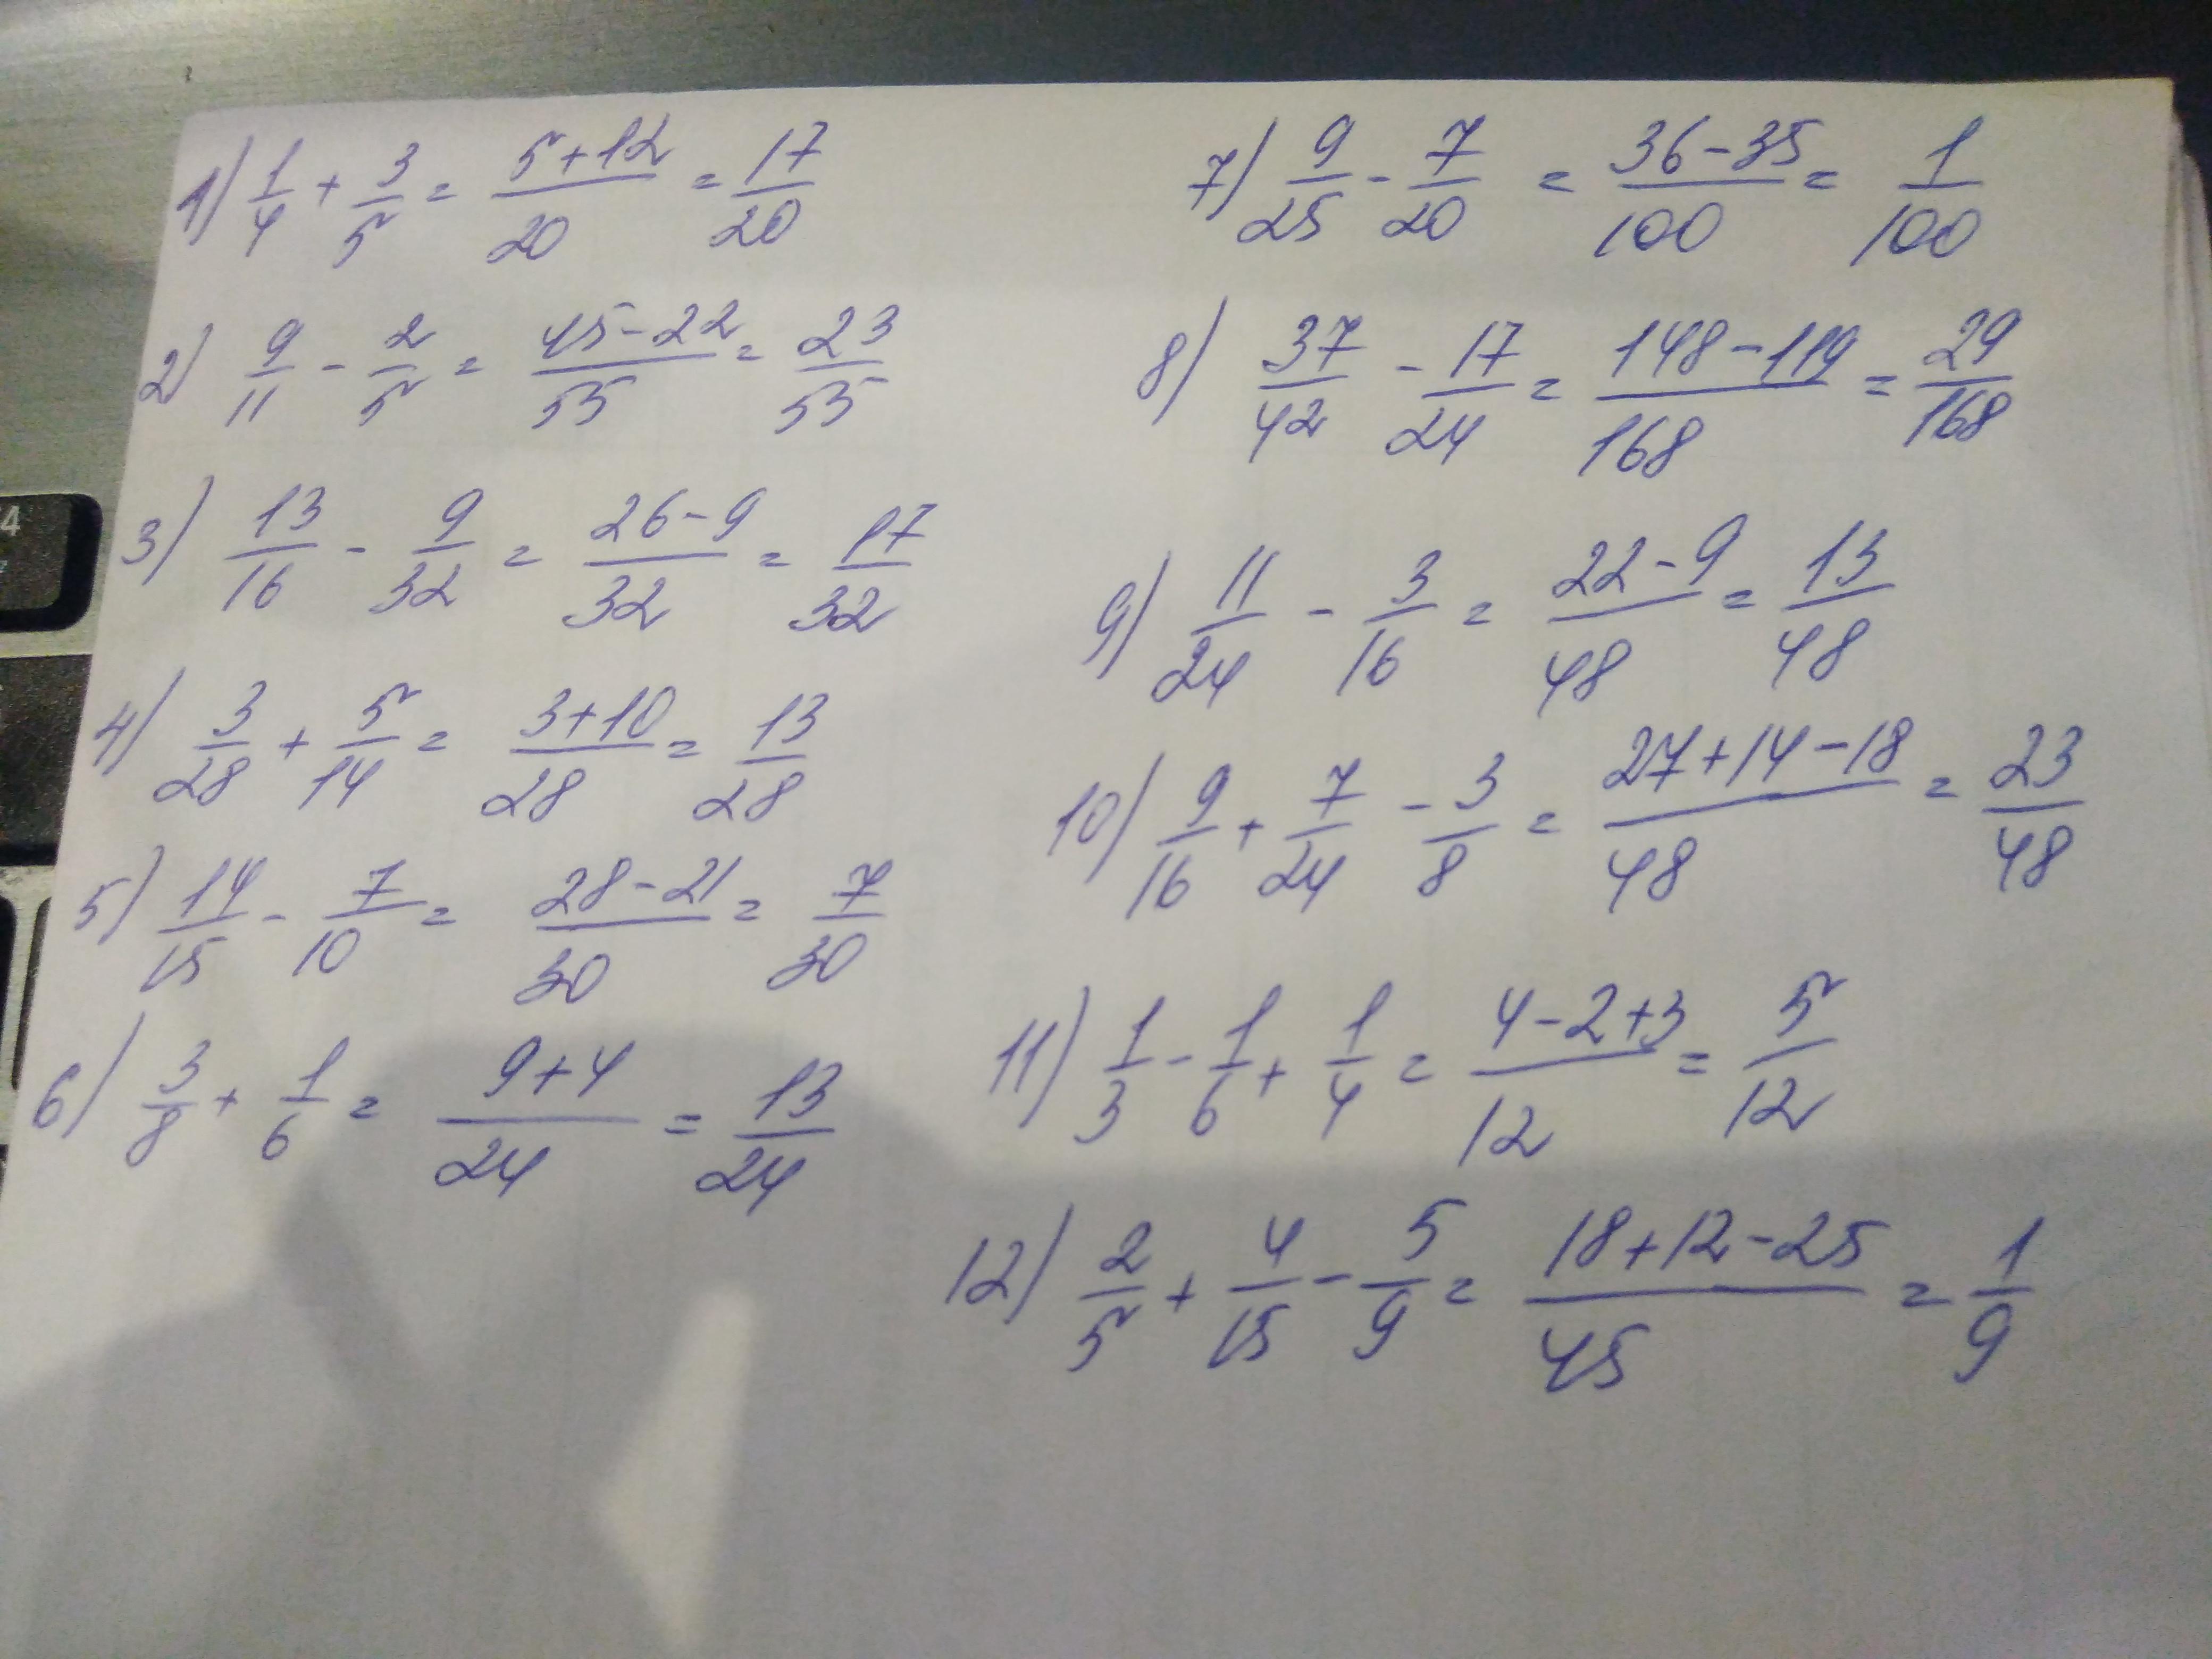 1) 1/4 + 3/5 = (5+12)/20 = 17/20
2) 9/11 - 2/5 = (45-22)/55 = 23/55
3) 13/16 - 9/32 = (26-9)/32 = 17/32
4) 3/28 + 5/14 = (3+10)/28 = 13/28
5) 14/15 - 7/10 = (28-21)/30 = 7/30
6) 3/8 + 1/6 = (9+4)/24 = 13/24
7) 9/25 - 7/20 = (36-35)/100 = 1/100
8) 37/42 - 17/24 = (148-119)/168 = 29/168
9) 11/24 - 3/16 = (22-9)/48 = 13/48
10) 9/16 + 7/24 - 3/8 = (27+14-18)/48 = 23/48
11) 1/3 - 1/6 + 1/4 = (4-2+3)/12 = 5/12
12) 2/5 + 4/15 - 5/9 = (18+12-25)/45 = 1/9